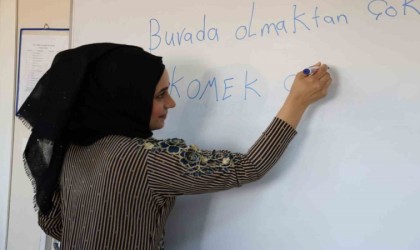 Burada olmaktan çok
KOMEK